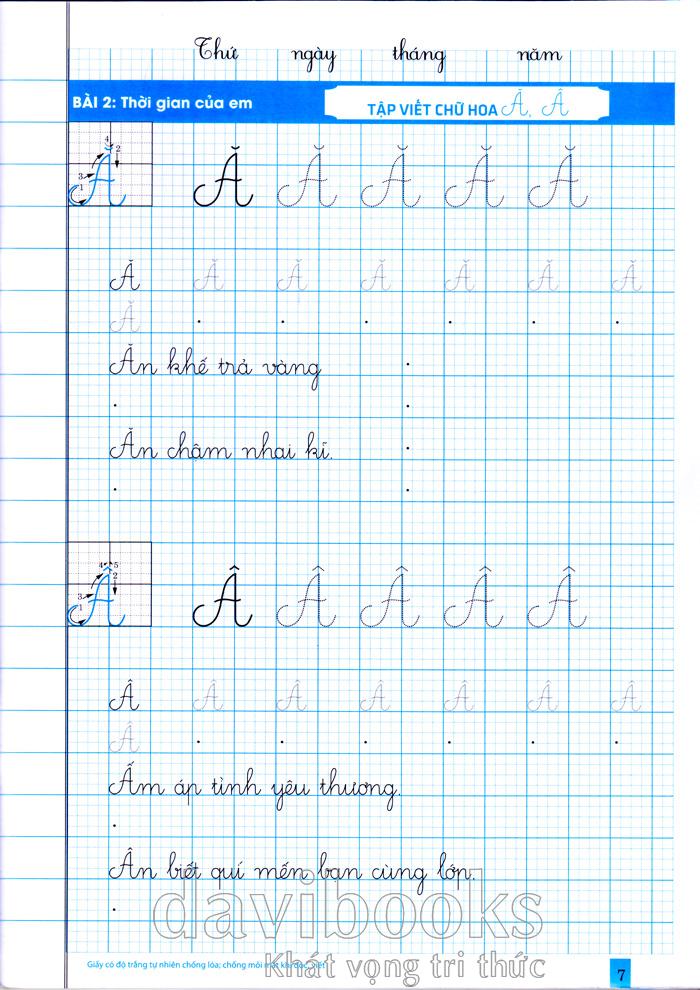 Thứ ngày tháng năm
BÀI 2: Thời gian của em
TẬP VIẾT CHỮ HOA Ă, Â
4
2
3
1
Ă Ă Ă Ă Ă
Ă Ă Ă Ă Ă Ă Ă
Ă
Ăn khế trả vàng
Ăn chậm nhai kĩ.
4 5
2
3
1
Â Â Â Â Â
Â Â Â Â Â Â Â
Â
Ấm áp tình yêu thương.
Ân biết quí mến bạn cùng lớp.
davibooks
Khát vọng tri thức
Giấy có độ trắng tự nhiên chống lóa; chống mỏi mắt khi đọc, viết
7